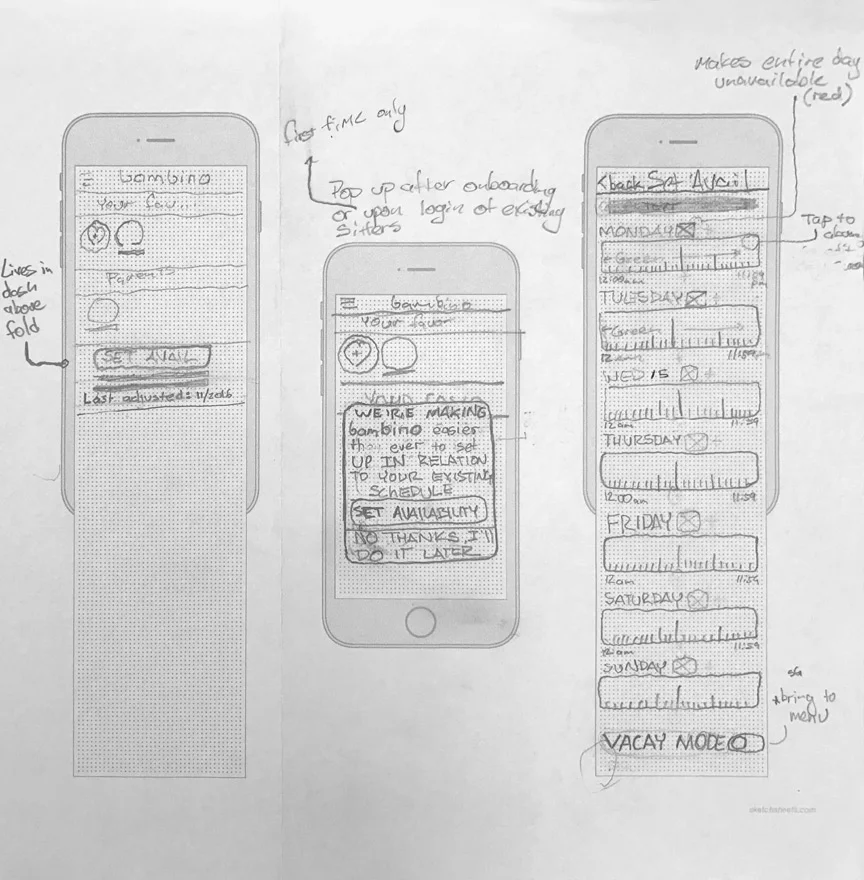 bambino
Your fav...
Parents
SET AVAIL
Last adjusted: 11/2016
Lives in
dash
above
fold
first time only
Pop up after onboarding
or upon login of existing
sitters
bambino
Your favor
WE'RE MAKING
bambino easier
than ever to set
UP IN RELATION
TO YOUR EXISTING
SCHEDULE
SET AVAILABILITY
NO THANKS, I'll
DO IT LATER
Makes entire day
unavailable
(red)
<back Set Avail
MONDAY
Green
12:00am 11:59
pm
Tap to
TULESDAY
Green
12am
WED 15
12am 11:59
THURSDAY
12:00am 11:59
FRIDAY
12am 11:59
SATURDAY
12am 11:59
SUNDAY
bring to
menu
VACAY MODE
sketchsheets.com